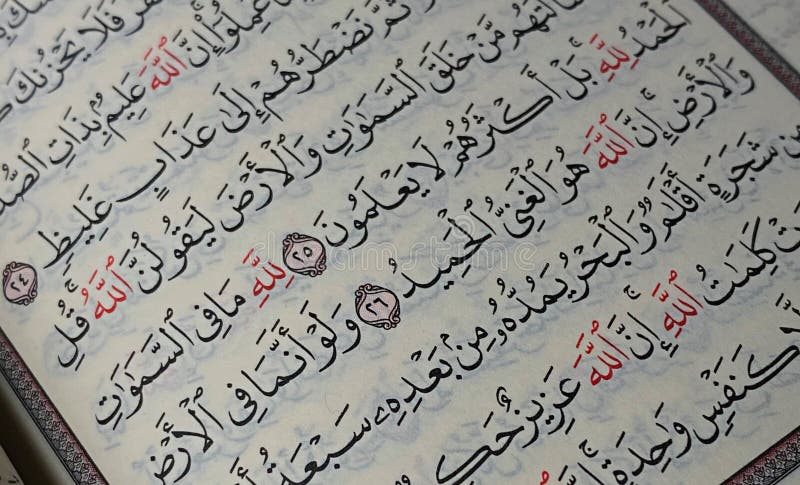 فَلَا يَحْزُنكَ
عَمِلُوٓا۟ إِنَّ ٱللَّهَ عَلِيمٌۢ بِذَاتِ ٱلصُّ
ثُمَّ نَضْطَرُّهُمْ إِلَىٰ عَذَابٍ غَلِيظٍ ٢٤
سَأَلْتَهُم مَّنْ خَلَقَ ٱلسَّمَٰوَٰتِ وَٱلْأَرْضَ لَيَقُولُنَّ ٱللَّهُ قُلِ
ٱلْحَمْدُ لِلَّهِ بَلْ أَكْثَرُهُمْ لَا يَعْلَمُونَ ٢٥ لِلَّهِ مَا فِى ٱلسَّمَٰوَٰتِ
وَٱلْأَرْضِ إِنَّ ٱللَّهَ هُوَ ٱلْغَنِىُّ ٱلْحَمِيدُ ٢٦ وَلَوْ أَنَّمَا فِى ٱلْأَرْضِ
مِن شَجَرَةٍ أَقْلَٰمٌ وَٱلْبَحْرُ يَمُدُّهُۥ مِنۢ بَعْدِهِۦ سَبْعَةُ
كَلِمَٰتُ ٱللَّهِ إِنَّ ٱللَّهَ عَزِيزٌ حَكِ
كَنَفْسٍ وَٰحِدَةٍ إِنَّ